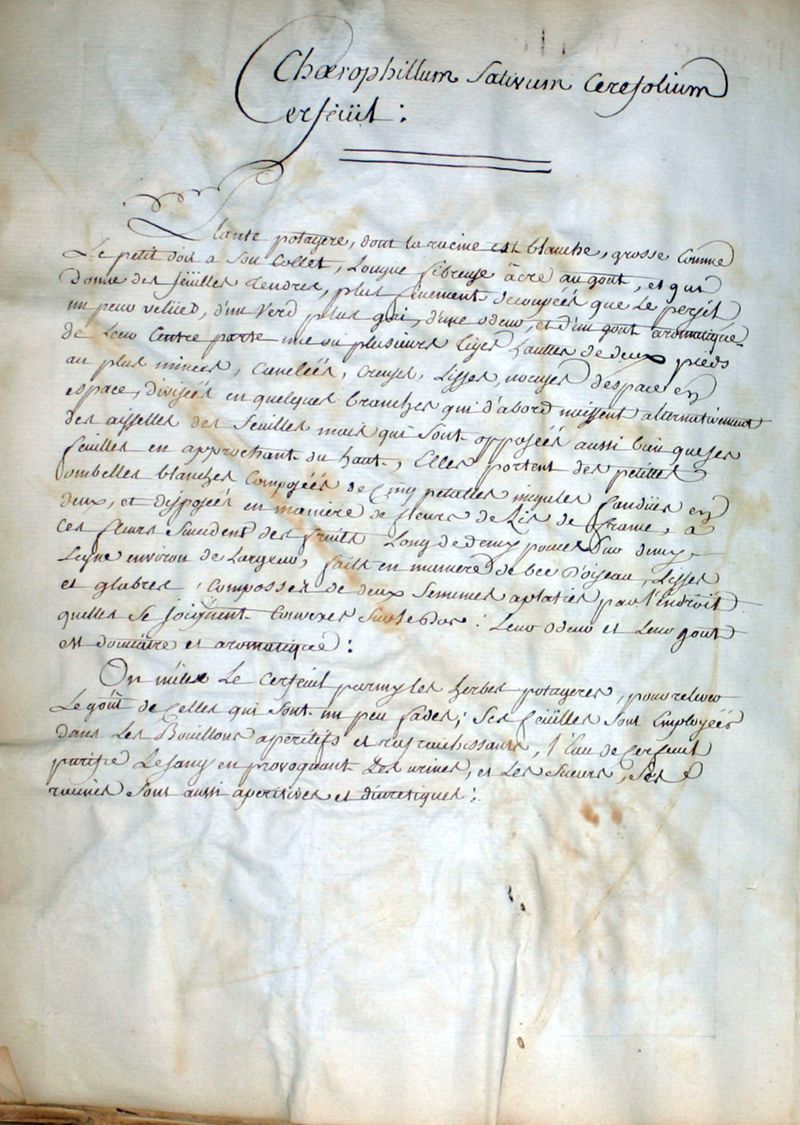 Chœrophillum Sativum Cerefolium
Cerfeüil :
Plante potagere, dont la racine est blanche, grosse Comme
Le petit doit a Son Collet, Longue fibreuse âcre au gout, et qui
donne des feüilles tendres, plus finement decoupéés que Le persil
un peu veliies, d'un verd plus gai, d'une odeur, et d'un gout aromatique
de Leur Centre parte une ou plusieurs tiges hautes de deux pieds
au plus minces, Canelléés, Creuses, Lisses, d'espace en
espace, diviséés en quelques branches qui d'abord naissent alternativement
des aisselles des feuilles mais qui sont opposéés aussi bien que ses
feuilles en approchant du haut, Elles portent des petittes
ombelles blanches Composéés de Cinq petalles inegales fendües en
deux, et disposéés en maniere de fleurs de Lis de france, a
Ces fleurs Succedent des fruits Long de deux pouces Sur deux
Ligne environ de Largeur, faits en maniere de bec d'oiseau, Lisses
et glabres, Composses de deux Semences aplaties par l'endroit
quelles se joignent Convexes Sur le dos : Leur odeur et Leur gout
est et aromatique :
On mêle Le Cerfeuil parmy les herbes potageres, pour relever
Le goût de Celles qui sont un peu fades, Ses feüilles sont Employéés
dans Les Bouillons aperitifs et rafraichissants, l'Eau de Cerfeuil
purifie Le sang en provoquant Les urines, et Les Sueurs, Ses
racines sont aussi aperitives et diuretiques :